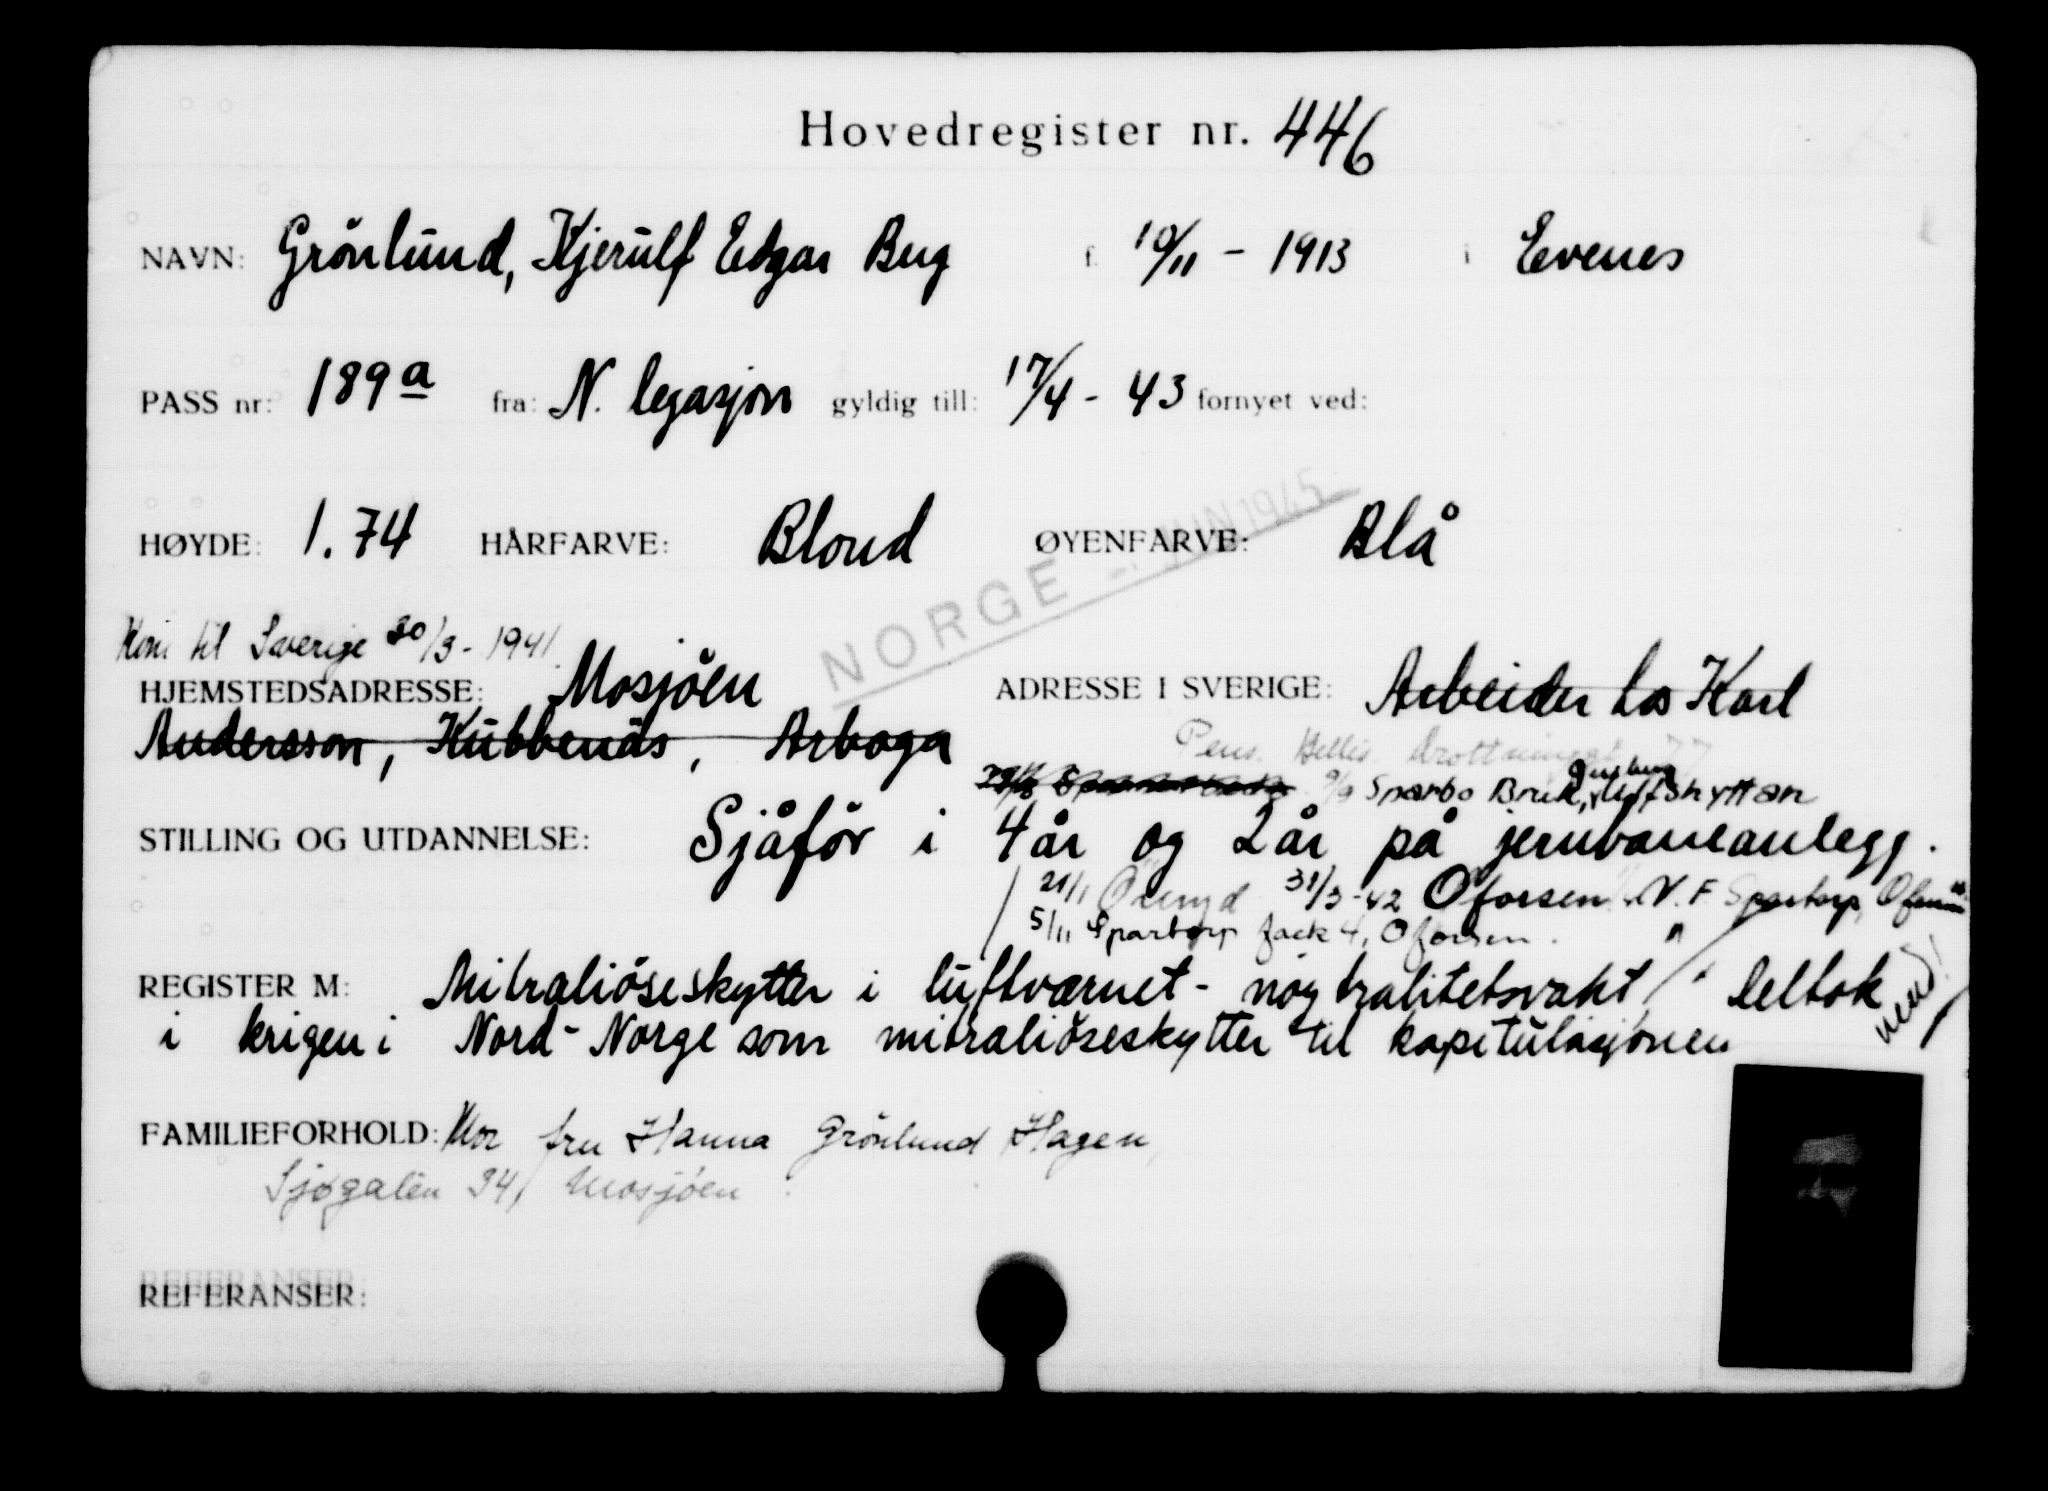 Hovedregister nr. 446
NAVN: Grönlund, Kjerulf Edgar Berg f. 10/11 - 1913 i Evenes
PASS nr: 189 a fra: N. legasjon gyldig till: 17/4 - 43 fornyet ved:
HØYDE: 1.74 HÅRFARVE: Blond ØYENFARVE: Blå
NORGE - JUN 1945
Kom til Sverige 30/3 - 1941.
HJEMSTEDSADRESSE: Mosjöen ADRESSE I SVERIGE: Arbeider hos Karl
Andersson, Kubbenäs, Arboga
Pens. Hellis. Drottninggt 77
9/9 Sparbo Bruk, skyttan
STILLING OG UTDANNELSE: Sjåför i 4 år og 2 år på jernbaneanlegg.
21/1 31/3-42 Oforsen N. F Spartorp,
5/11 Spartorp fack 4, Oforsen. "
REGISTER M: Mitraliöseskytter i luftværnet - nöytralitetsvakt deltok
i krigen i Nord-Norge som mitraliöseskytter til kapitulasjonen
FAMILIEFORHOLD: Mor fru Hanna Grönlund Hagen,
Sjøgaten 34, Mosjöen.
REFERANSER: